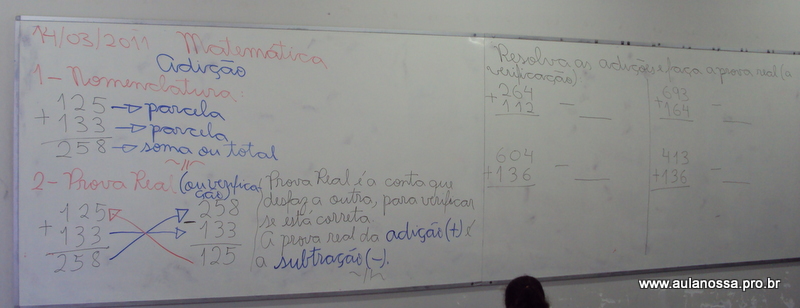 14/03/2011 Matemática
Adição
1- Nomenclatura:
125 → parcela
+ 133 → parcela
258 → soma ou total
2- Prova Real (ou verifica
ção)
125
+ 133
258
258
- 133
125
Prova Real é a conta que
desfaz a outra, para verificar
se está correta.
A prova real da adição (+) é
a subtração (-).
Resolva as adições e faça a prova real (a
verificação)
264
+ 112
693
+ 164
604
+ 136
413
+ 136
www.aulanossa.pro.br